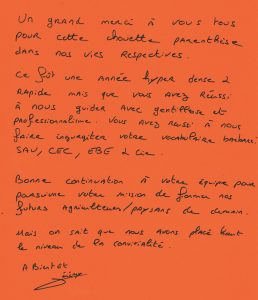 Un grand merci à vous tous
pour cette chouette parenthèse
dans nos vies respectives.
Ce fût une année hyper dense &
rapide mais que vous avez réussi
à nous guider avec gentillesse et
professionnalisme. Vous avez réussi à nous
faire ingurgiter votre vocabulaire barbare:
SAU, CEC, EBE & Cie.
Bonne continuation à votre équipe pour
poursuivre votre mission de former nos
futurs agriculteurs/paysans de demain.
Mais on sait que nous avons placé haut
le niveau de la convivialité.
A Bientôt